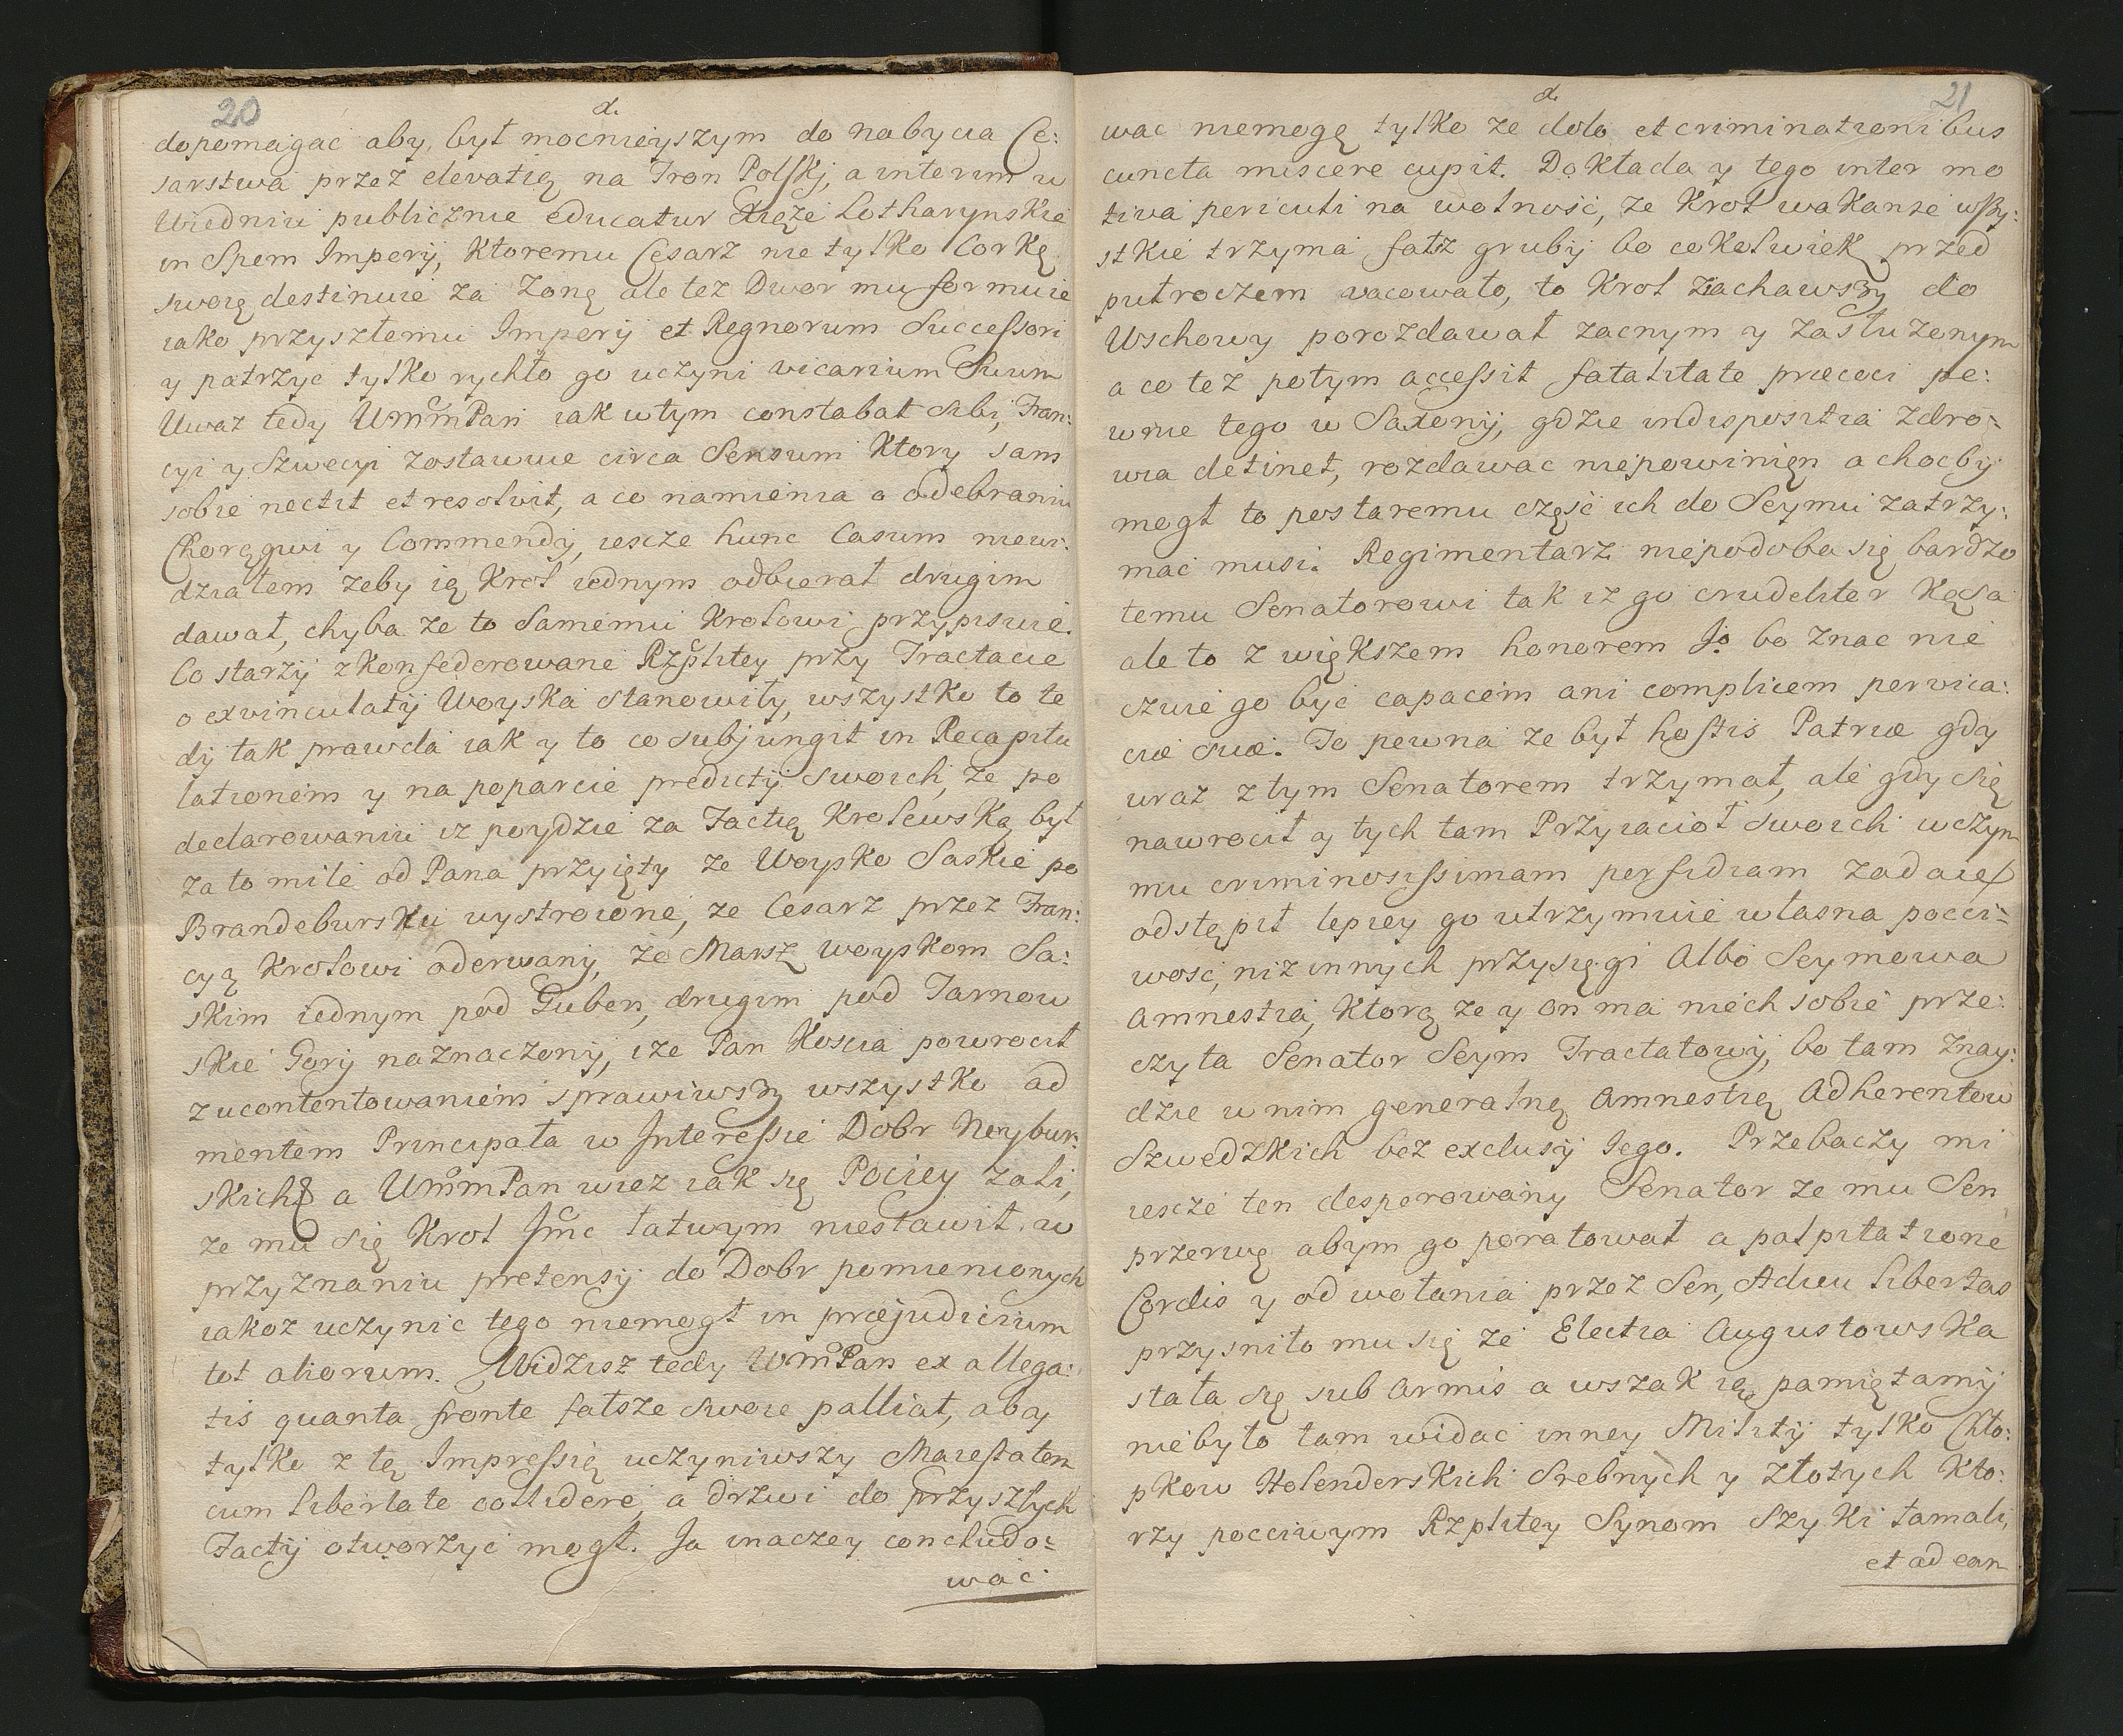 20
d.
dopomagać aby, był mocnieyszym do nabycia Ce:
sarstwa przez elevatią na Tron Polskj, a interim w
Wiedniu publicznie educatur Xiąże Lotharynskie
in Spem Imperij, Ktoremu Cesarz nie tylko Corkę
swoię destinuie za Zonę ale też Dwor mu formuie
iako przyszłemu Imperij et Regnorum Successori
y patrzyć tylko rychło go uczyni vicarium Suum
Uważ tedy UmmPan iak wtym constabat sibi, Fran:
cyi y Szwecyi zostawuie circa Sensum Ktory sam
sobie nectit et resolvit, a co namienia o odebraniu
Chorągwi y Commendy, iescze hunc Casum niewi:
działem żeby ią Krol iednym odbierał drugim
dawał, chyba że to Samemu Krolowi przypisuie.
Co starzy zkonfederowane Rzplitey przy Tractacie
o exvinculatij Woyska stanowiły, wszystko to te
dy tak prawda iak y to co subjungit in Recapitu
lationem y na poparcie predictij swoich, że po
declarowaniu iż poydzie za Factią Krolewską, był
za to mile od Pana przyięty że Woysko Saskie po
Brandebursku wystroione, że Cesarz przez Fran:
cyą Krolowi oderwany, że Marsz woyskom Sa:
skim iednym pod Guben, drugim pod Tarnow
skie Gory naznaczony, i że Pan Koscia powrocił
z ucontentowaniem sprawiwszy wszystko ad
mentem Principała w Interessie Dobr Neybur:
skich a UmmPan wiez iak się Pociey żali,
że mu się Krol Jmc łatwym niestawił w
przyznaniu pretensij do Dobr pomienionych
iakoż uczynic tego niemogł in præjudicium
tot aliorum. Widzisz tedy WmPan ex allega:
tis quanta fronte fałsze swoie palliat, aby
tylko z tę Impressię uczyniwszy Maiestatem
cum Libertate collidere, a drzwi do przyszłych
Factij otworzyć mogł. Ja inaczey concludo:
wać
21
d.
wac niemogę tylko że dolo et criminationibus
cuncta miscere cupit. Dokłada y tego inter mo
tiva periculi na wolność, że Krol wakanse wszy:
stkie trzyma fałsz gruby bo cokolwiek przed
putroczem vacowało, to Krol ziachawszy do
Wschowy porozdawał zacnym y zasłużonym
a co też potym accessit fatalitate præcoci pe:
wnie tego w Saxonij, gdzie indispositia zdro:
wia detinet, rozdawac niepowinien a choćby
mogł to postaremu część ich do Seymu zatrzy:
mać musi. Regimentarz niepodoba się bardzo
temu Senatorowi tak iż go crudeliter Kąsa
ale to z większem honorem Jo bo znac nie
czuie go być capacem ani complicem pervica:
ciæ suæ. To pewna że był hostis Patriæ gdy
wraz z tym Senatorem trzymał, ale gdy się
nawrocił y tych tam Przyiacioł swoich wczym
mu criminosissimam perfidiam zadaie
odstąpił lepiey go utrzymuie własna pocci:
wość, niż innych przysięgi Albo Seymowa
Amnestia, Ktorą że y on ma niech sobie prze:
czyta Senator Seym Tractatowy, bo tam znay:
dzie w nim generalną Amnestię Adherentow
Szwedzkich bez exclusij Jego. Przebaczy mi
iescze ten desperowany Senator że mu Sen
przerwę abym go poratował a palpitatione
Cordis y od wołania przez Sen, Adieu Libertas
przysniło mu się że Electia Augustowska
stała się sub Armis a wszak ią pamiętamy
nie było tam widac inney Militij tylko Chło:
pkow Holenderskich Srebnych y złotych Kto:
rzy pocciwym Rzplitey Synom Szyki łamali,
et ad ean